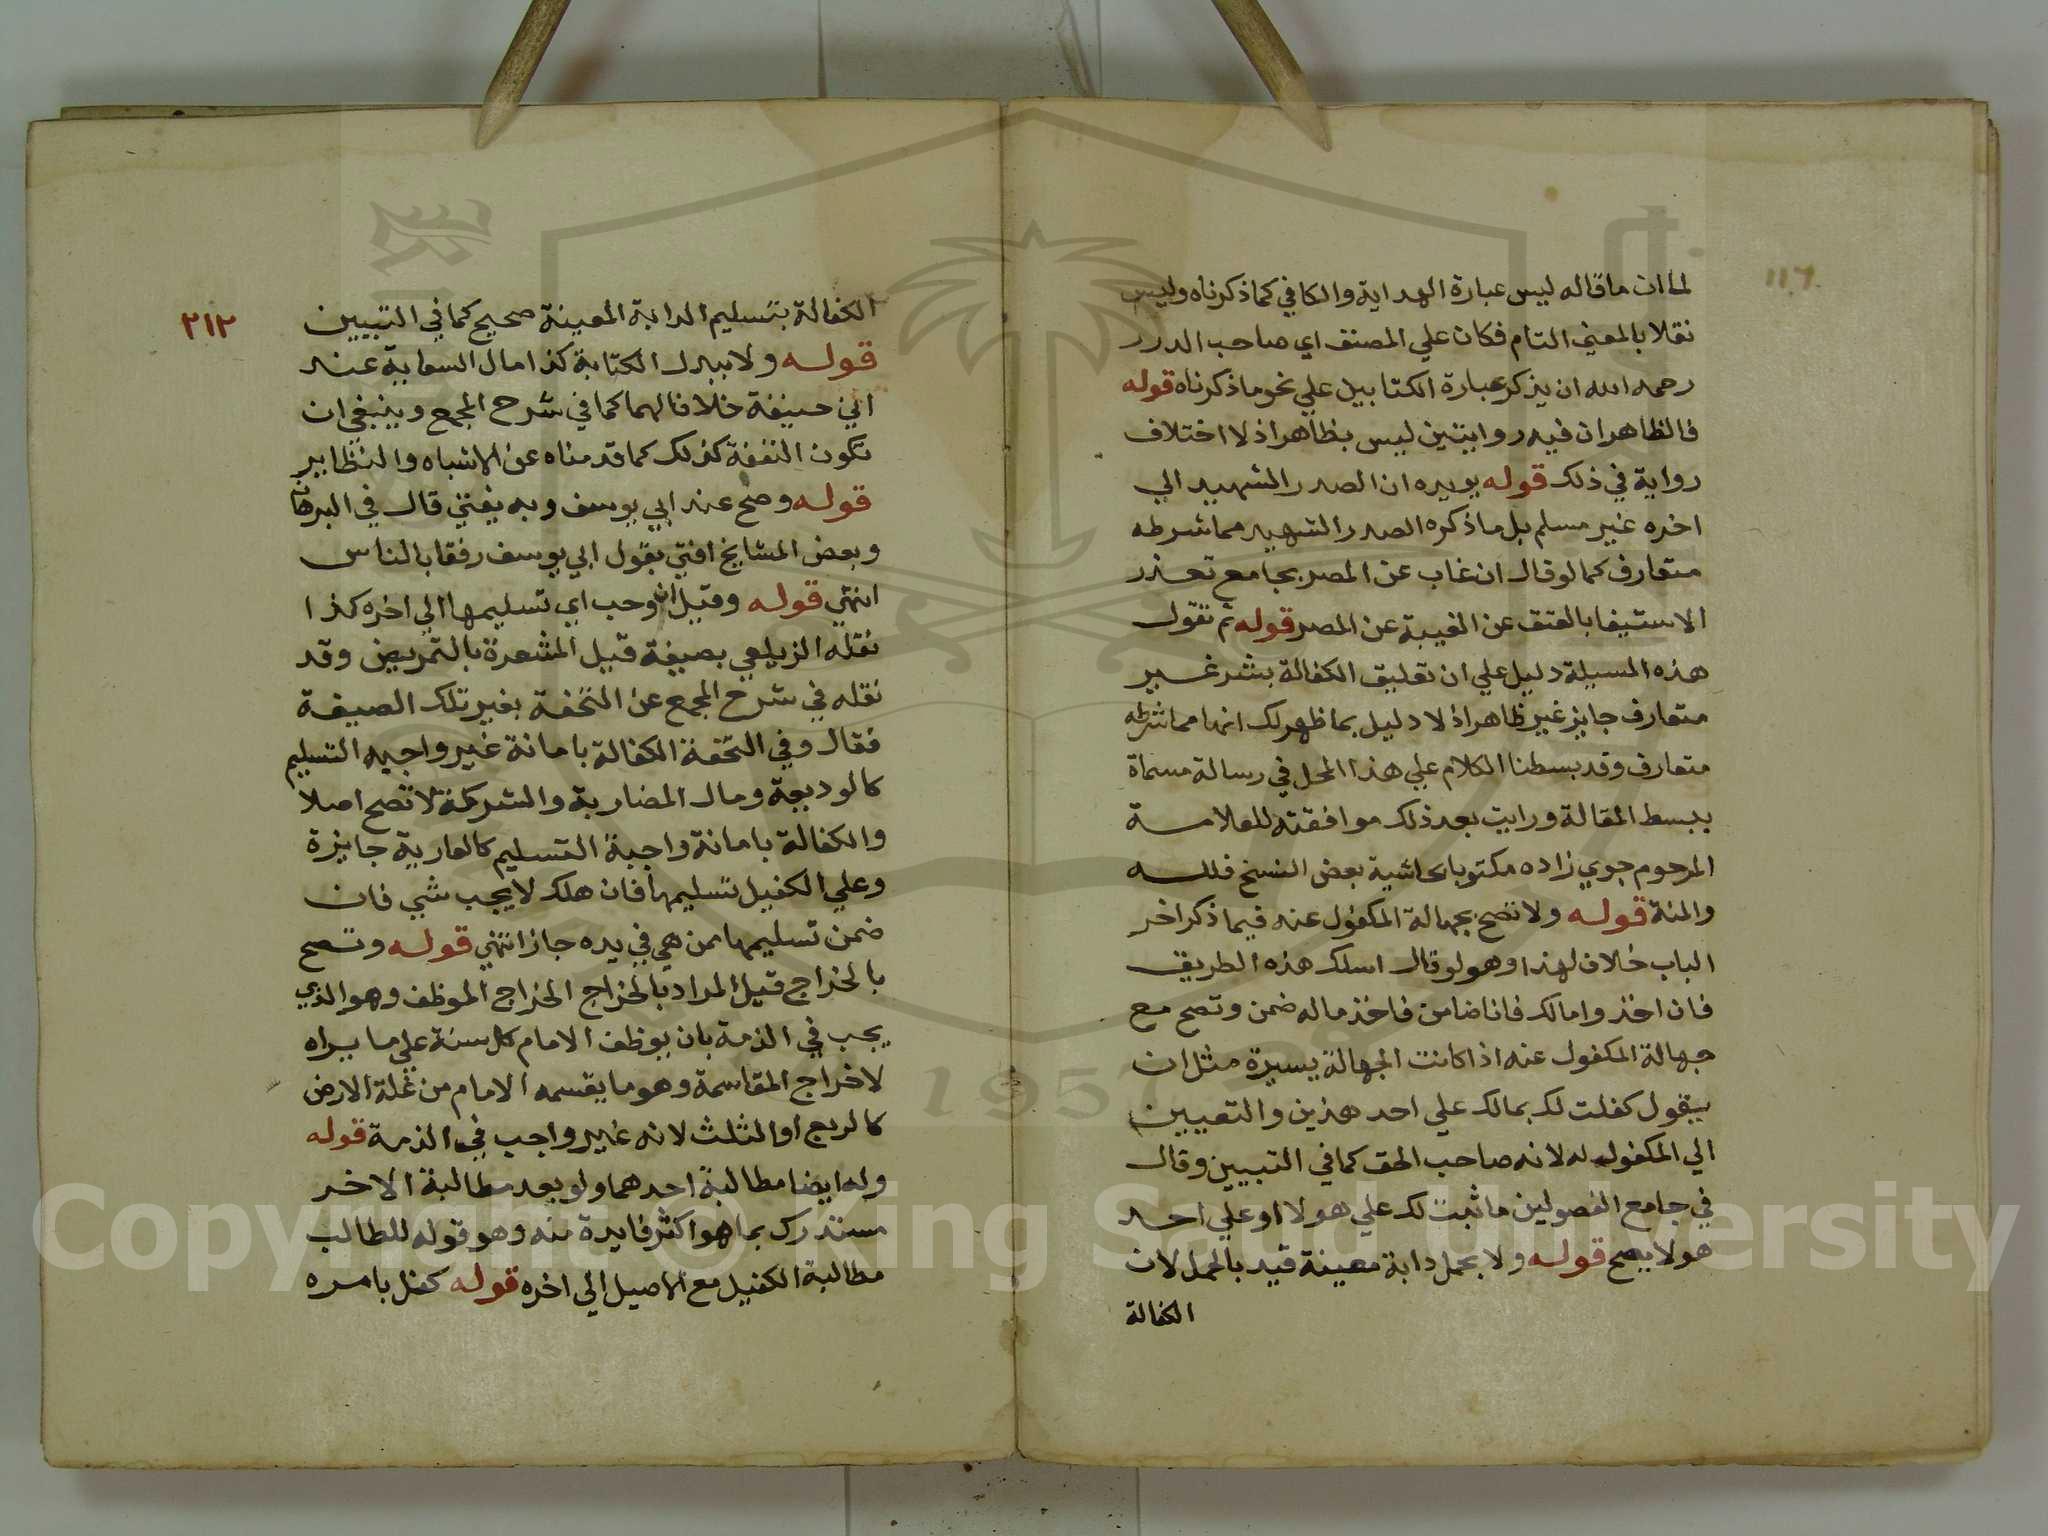 ١١٦
لما ان ما قاله ليس عبارة الهداية والكافي كما ذكرناه وليس
نقلا بالمعني التام فكان علي المصنف اي صاحب الدرر
رحمه الله ان يذكر عبارة الكتابيل علي نحو ما ذكرناه قوله
فالظاهر ان فيه روايتين ليس بظاهر اذ لا اختلاف
رواية في ذلك قوله يويده ان الصدر الشهيد الي
اخره غير مسلم بل ما ذكره الصدر الشهيد مما شرطه
متعارف كما لو قال ان غاب عن المصر بجامع تعذر
الاستيفا بالعتق عن الغيبة عن المصر قوله ثم نقول
هذه المسيلة دليل علي ان تعليق الكفالة بشر غير
متعارف جايز غير ظاهر اذ لا دليل بما ظهر لك انها مما شرطه
متعارف وقد بسطنا الكلام علي هذا المحل في رسالة مسماة
ببسط المقالة ورايت بعد ذلك موافقته للعلامة
المرحوم جوي زاده مكتوبا بحاشية بعض النسخ فلله
والمنة قوله ولا تصح بجهالة المكفول عنه فيما ذكر اخر
الباب خلاف لهذا وهو لو قال اسلك هذه الطريق
فان اخذوا مالك فانا ضامن فاخذ ماله ضمن وتصح مع
جهالة المكفول عنه اذا كانت الجهالة يسيرة مثل ان
يقول كفلت لك بمالك علي احد هذين والتعيين
الي المكفول له لانه صاحب الحق كما في التبيين وقال
في جامع الفصولين ما ثبت لك علي هولا او علي احد
هولا يصح قوله ولا بحمل دابة معينة قيد بالحمل لان
الكفالة
٢١٢
الكفالة بتسليم الدابة المعينة صحيح كما في التبيين
قوله ولا ببدل الكتابة كذا مال السعاية عند
ابي حنيفة خلافا لهما كما في شرح المجمع وينبغي ان
تكون النفقة كذلك كما قدمناه عن الاشباه والنظاير
قوله وصح عند ابي يوسف وبه يفتي قال في البرهان
وبعض المشايخ افتي بقول ابي يوسف رفقا بالناس
انتهي قوله وقيل ان وجب اي تسليمها الي اخره كذا
نقله الزيلعي بصيغة قيل المشعرة بالتمريض وقد
نقله في شرح المجمع عن التحفة بغير تلك الصيغة
فقال وفي التحفة الكفالة بامانة غير واجبه التسليم
كالوديعة ومال المضاربة والشركة لا تصح اصلا
والكفالة بامانة واجبة التسليم كالعارية جايزة
وعلي الكفيل تسليمها فان هلك لا يجب شي فان
ضمن تسليمها ممن هي في يده جاز انتهي قوله وتصح
بالخراج قيل المراد بالخراج الخراج الموظف وهو الذي
يجب في الذمة بان يوظف الامام كل سنة علي ما يراه
لا خراج المقاسمة وهو ما يقسمه الامام من غلة الارض
كالربع او الثلث لانه غير واجب في الذمة قوله
وله ايضا مطالبة احدهما ولو بعد مطالبة الاخر
مستدرك بما هو اكثر فايدة منه وهو قوله للطالب
مطالبة الكفيل مع الاصيل الي اخره قوله كفل بامره
1957
Copyright © King Saud University